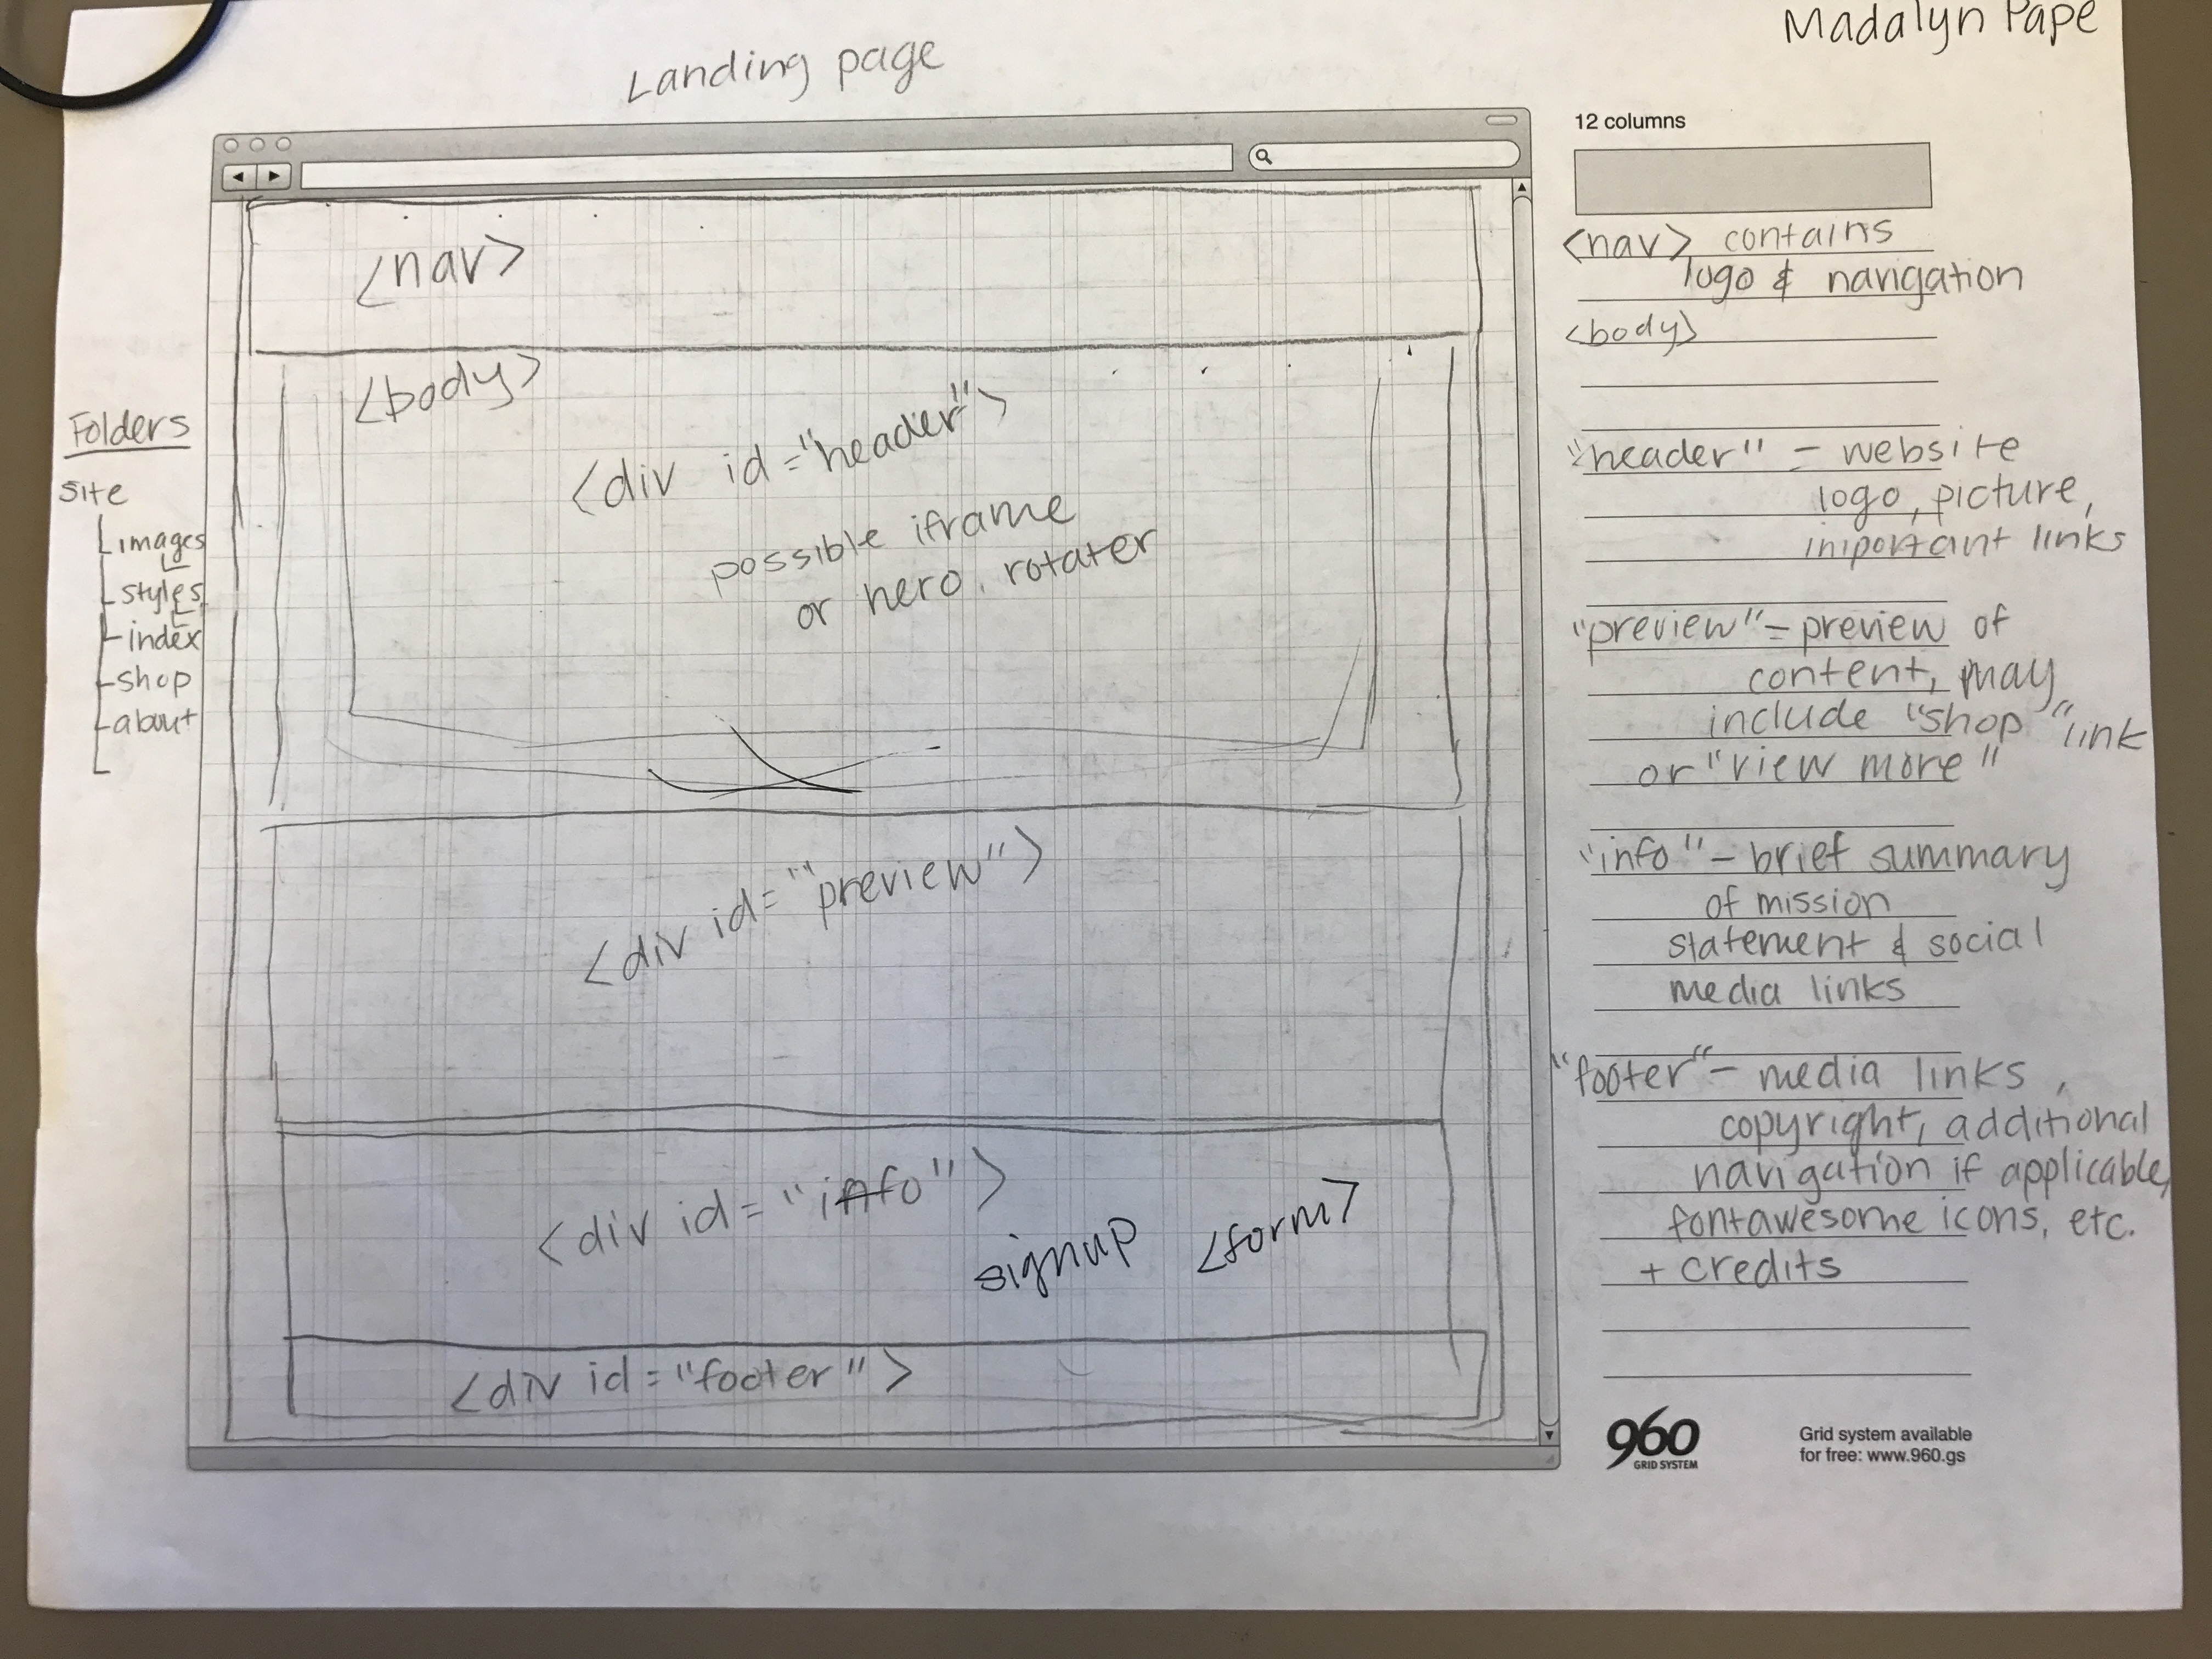 Madalyn Pape
Landing page
Folders
site
images
styles
index
shop
about
<nav>
<body>
<div id="header">
possible iframe
or hero rotater
<div id="preview">
<div id="info">
signup <form>
<div id="footer">
12 columns
<nav> contains
logo & navigation
<body>
"header" - website
logo, picture,
important links
"preview" - preview of
content, may
include "shop" link
or "view more"
"info" - brief summary
of mission
statement & social
media links
"footer" - media links,
copyright, additional
navigation if applicable,
fontawesome icons, etc.
+ credits
960
GRID SYSTEM
Grid system available
for free: www.960.gs